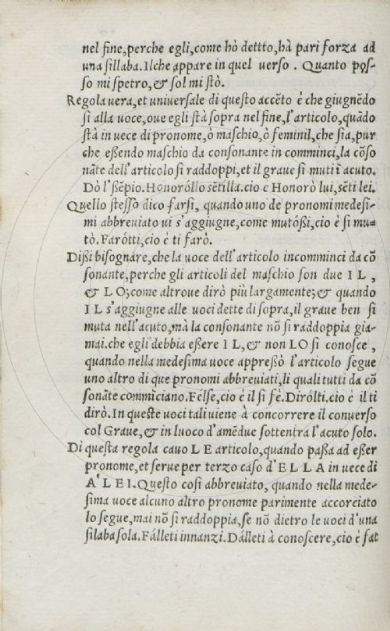 nel fine, perche egli, come hò dettto, hà pari forza ad
una sillaba. Ilche appare in quel verso. Quanto pos-
so mi spetro, & sol mi stò.
Regola vera, et universale di questo accẽto è che giugnẽdo
si alla voce, oue egli stà sopra nel fine, l'articolo, quãdo
stà in uece di pronome, ò maschio, ò feminil, che sia, pur
che eßendo maschio da consonante in comminci, la cõso
nãte dell'articolo si raddoppi, et il graue si muti ì acuto.
Dò l'ßẽpio. Honoróllo sẽtilla. cio e Honorò lui, sẽti lei.
Quello stesso dico farsi, quando uno de pronomi medesi-
mi abbreuiato ui s'aggiugne, come mutóßi, cio è si mu-
tò. Farótti, cio è ti farò.
Dißi bisognare, che la uoce dell'articolo incomminci da cõ
sonante, perche gli articoli del maschio son due IL,
& LO; come altroue dirò più largamente; & quando
IL s'aggiugne alle uoci dette di sopra, il graue ben si
muta nell'acuto, mà la consonante nõ si raddoppia gia-
mai. che egli debbia eßere IL, & non LO si conosce,
quando nella medesima uoce appreßò l'articolo segue
uno altro di que pronomi abbreuiati, li quali tutti da cõ
sonãte commiciano. Félse, cio è il si fè. Dirólti. cio è il ti
dirò. In queste uoci tali uiene à concorrere il conuerso
col Graue, & in luoco d'amẽdue sottentra l'acuto solo.
Di questa regola cauo LE articolo, quando paßa ad eßer
pronome, et serue per terzo caso d'ELLA in uece di
A' LEI. Questo cosi abbreuiato, quando nella mede-
sima uoce alcuno altro pronome parimente accorciato
lo segue, mai nõ si raddoppia, se nõ dietro le uoci d'una
silaba sola. Fálleti innanzi. Dálleti à conoscere, cio è fat